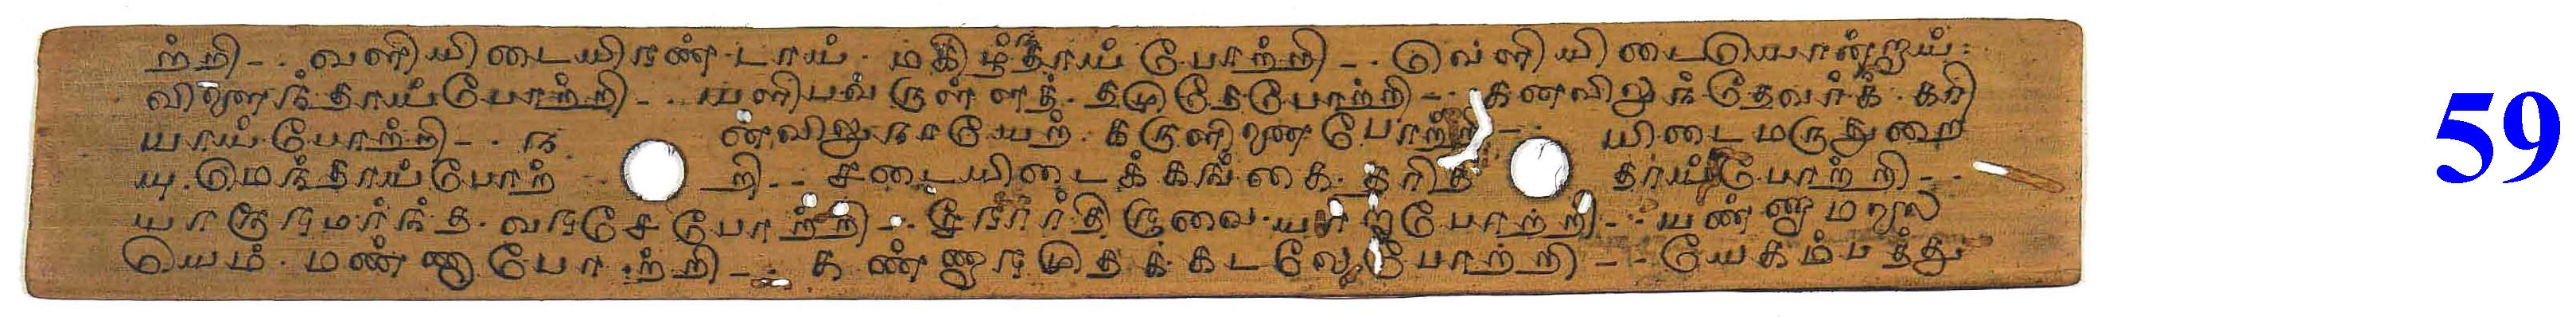 ற்றி-. வளியிடையிரண்டாய் மகிழ்ந்தாய் போற்றி-. வெளியிடையொன்றாய்
விளைந்தாய்போற்றி-. யளிபவ ருள்ளத் தமுதேபோற்றி-. கனவிலுந்தேவர்க் கரி
யாய் போற்றி-. ந னவிலுநாயேற் கருளினை போற்றி-. யிடைமருதுறை
யு மெந்தாய்போற் றி-. சடையிடைக் கங்கை தரித் தாய்போற்றி-.
யாரூரமர்ந்த வரசே போற்றி-. சீரார் திருவையாறபோற்றி-. யண்ணாமலை
யெம் மண்ணா போற்றி-. கண்ணாரமுதக் கடலே போற்றி-. யேகம்பத்து
59